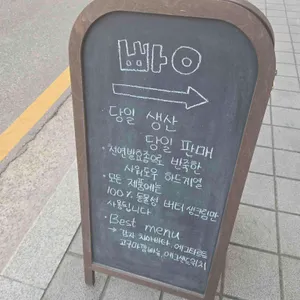 빵
→
· 당일 생산
당일 판매
· 천연발효종으로 반죽한
사워도우 하드계열
· 모든 제품에는
100% 동물성 버터 생크림만
사용됩니다
· Best menu
→ 감자 치아바타, 에그타르트
고구마깜빠뉴,